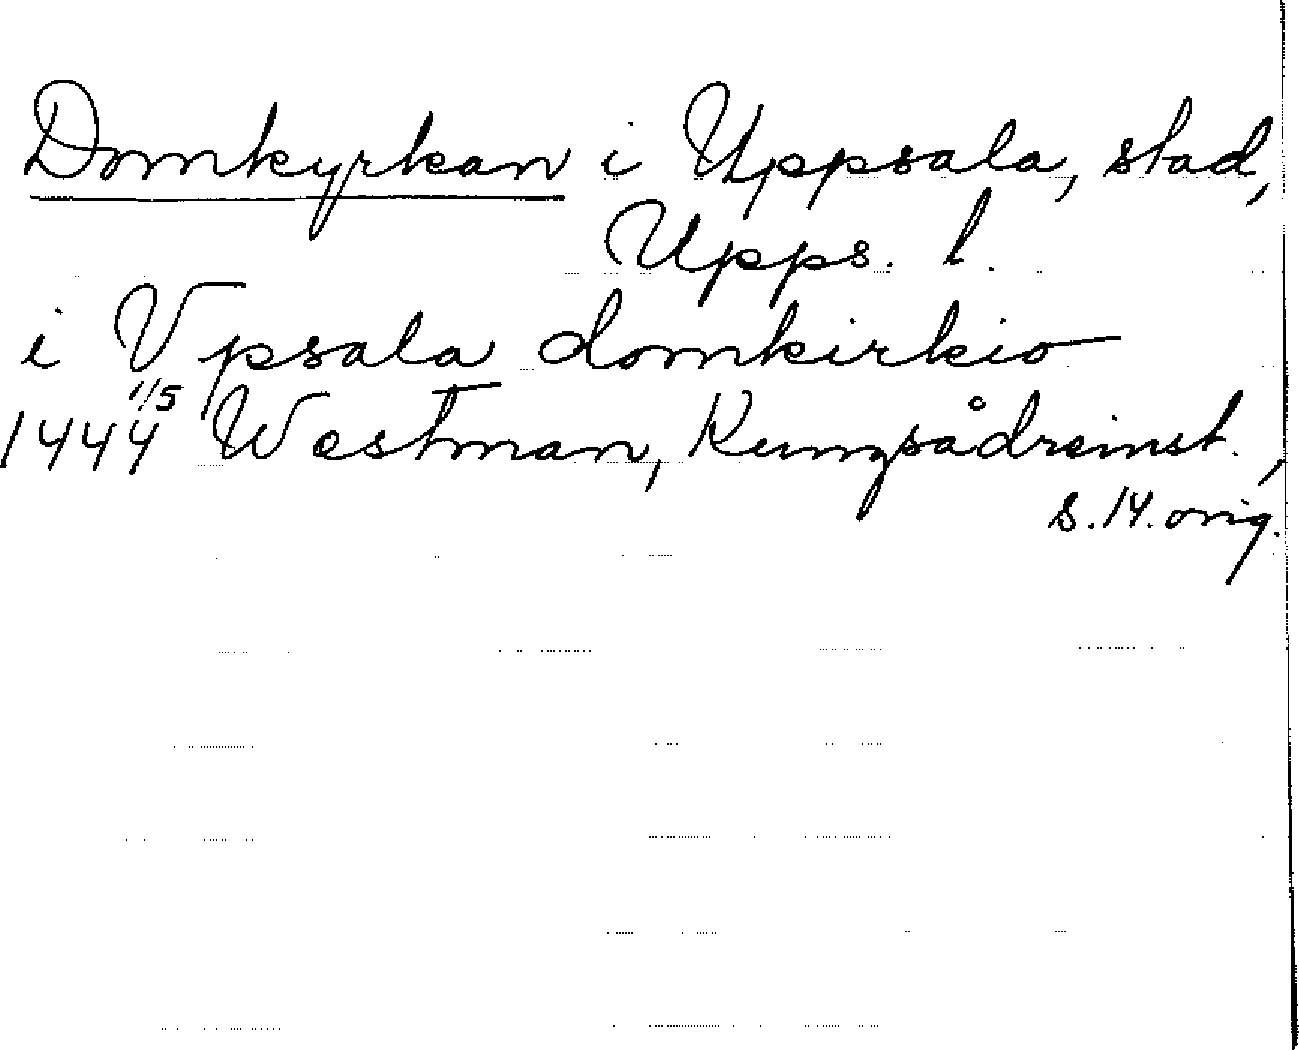 Domkyrkan i Uppsala, stad,
Upps. l.
i Vpsala domkirkio
1444 1/5 Westman, Kungsådreinst.,
s. 14. orig.